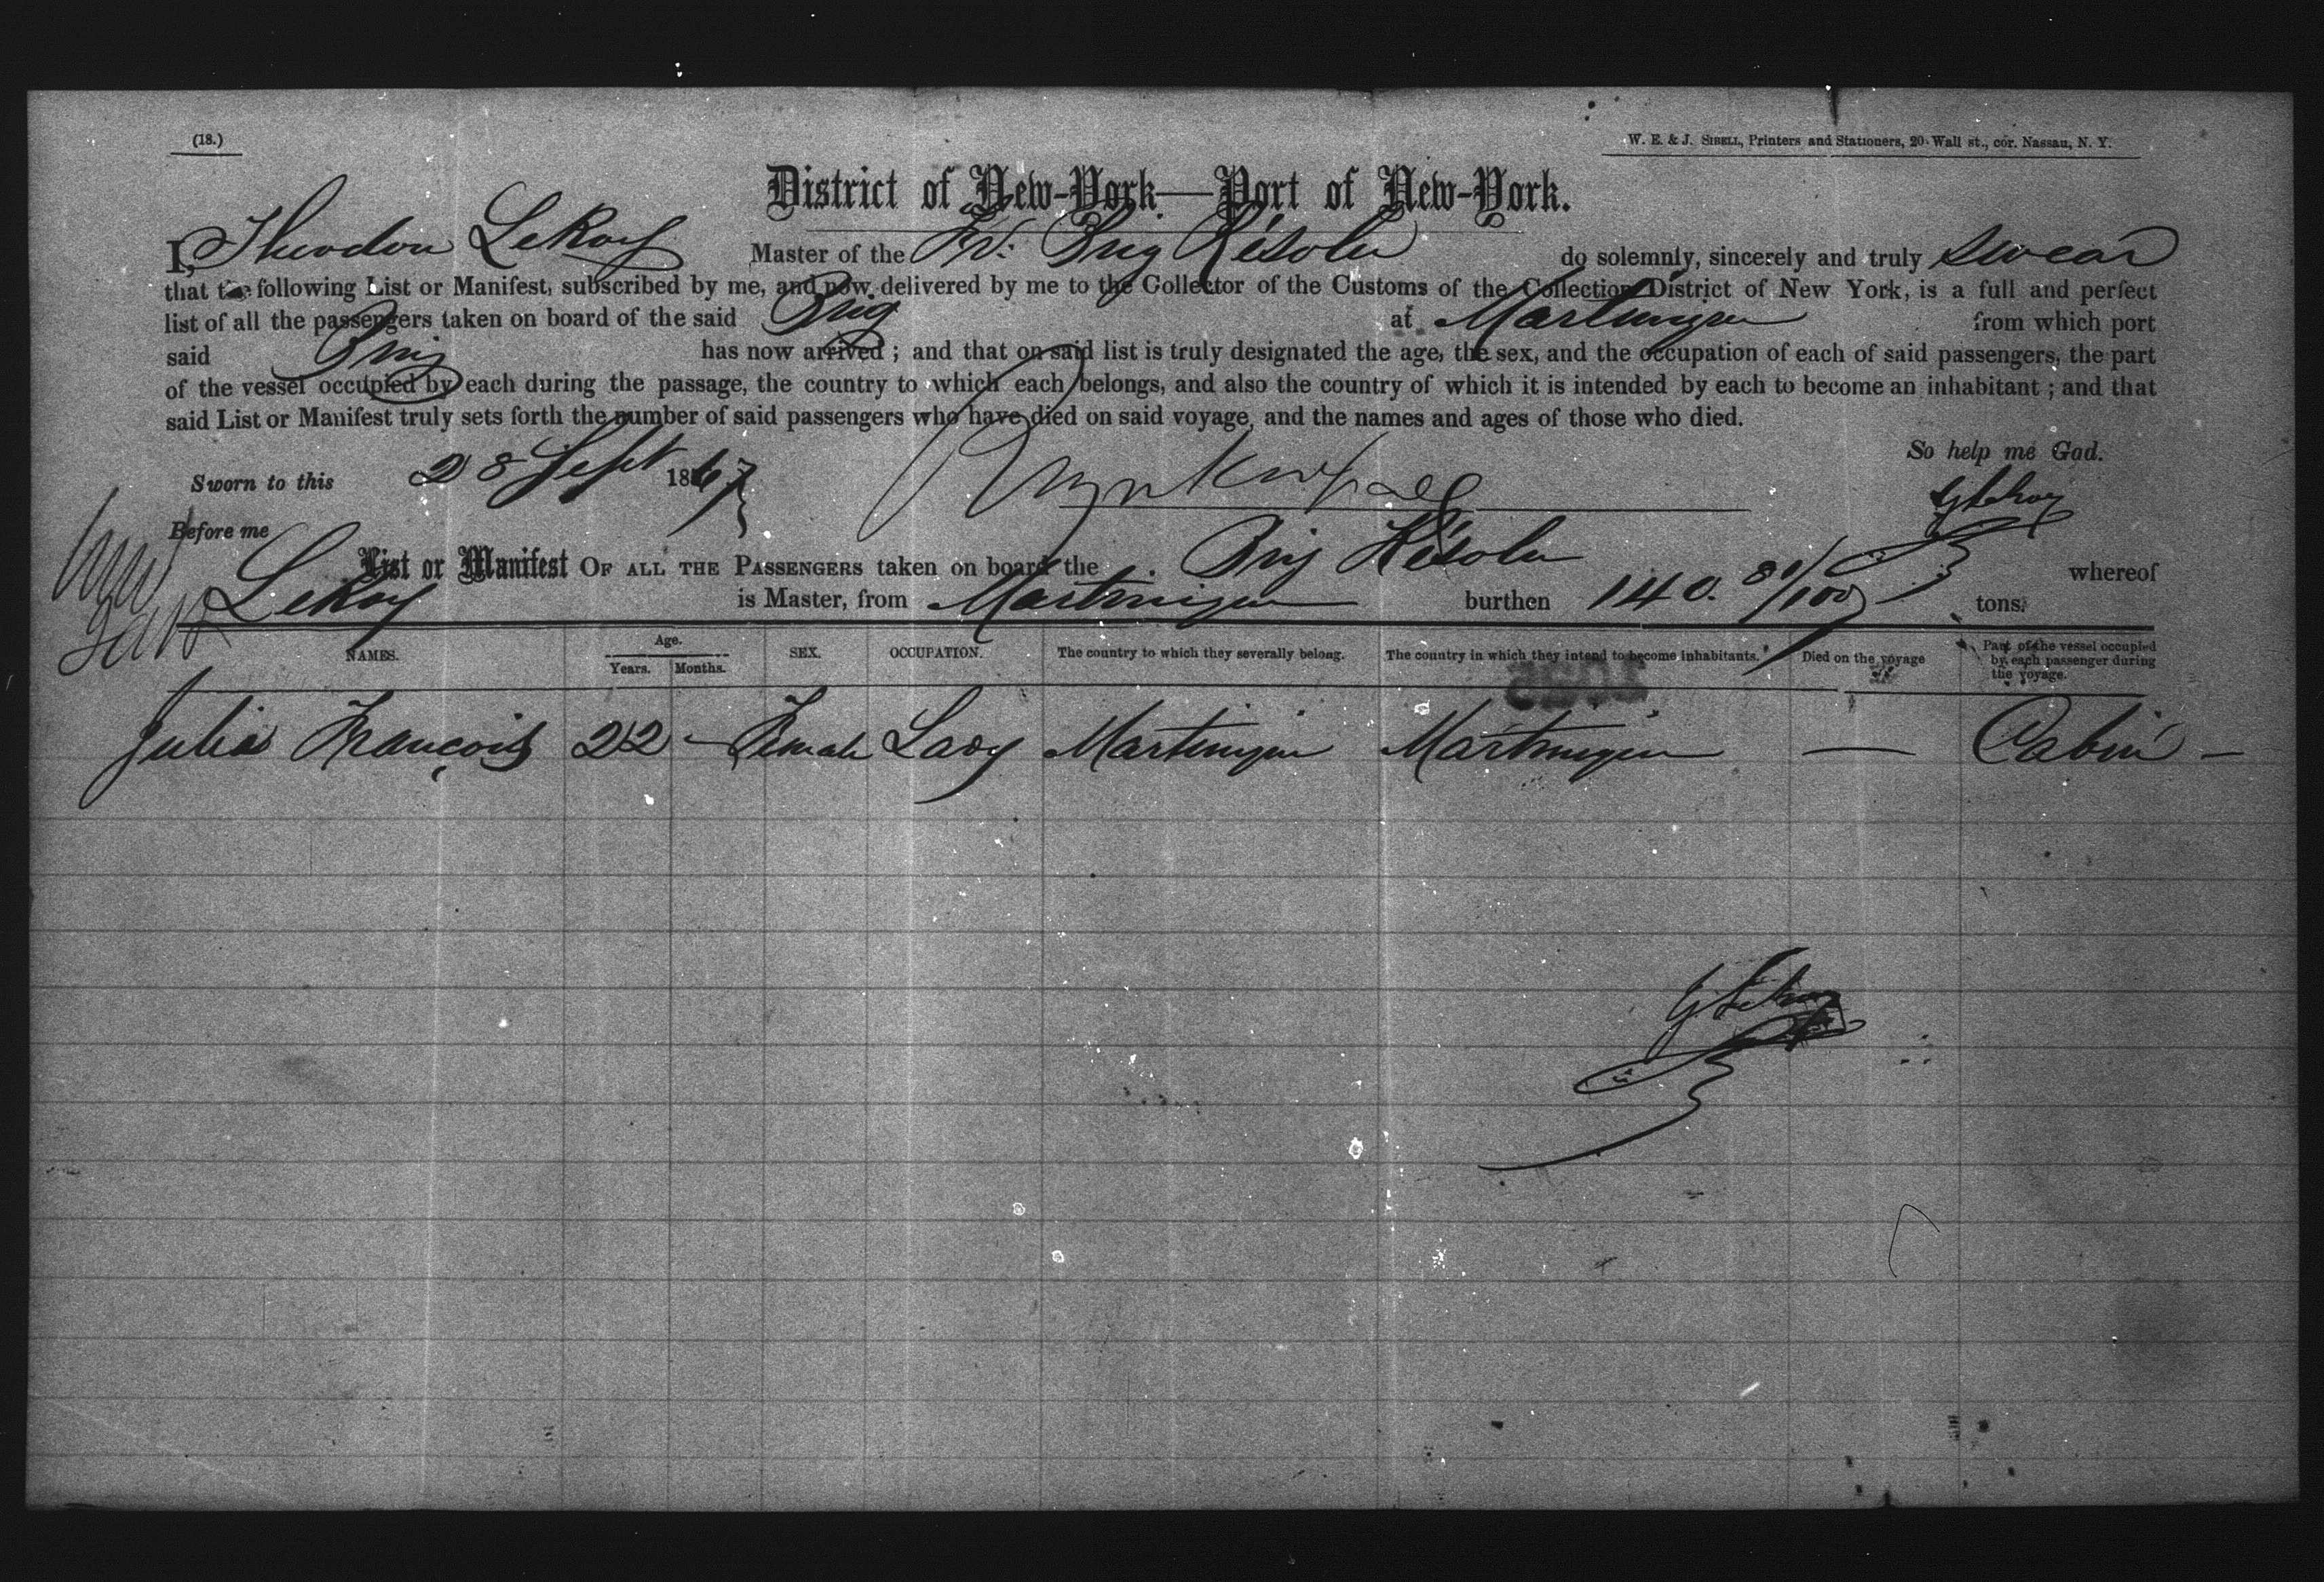 (18.)
W. E. & J. SIBELL, Printers and Stationers, 20 Wall st., cor. Nassau, N. Y.
District of New-York—Port of New-York.
I, Theodore LeRoy Master of the Fr. Brig Résolu do solemnly, sincerely and truly swear
that the following List or Manifest, subscribed by me, and now delivered by me to the Collector of the Customs of the Collection District of New York, is a full and perfect
list of all the passengers taken on board of the said Brig at Martinique from which port
said Brig has now arrived ; and that on said list is truly designated the age, the sex, and the occupation of each of said passengers, the part
of the vessel occupied by each during the passage, the country to which each belongs, and also the country of which it is intended by each to become an inhabitant ; and that
said List or Manifest truly sets forth the number of said passengers who have died on said voyage, and the names and ages of those who died.
So help me God.
Sworn to this 28 Sept 1867
Before me
List or Manifest OF ALL THE PASSENGERS taken on board the Brig Résolu whereof
LeRoy is Master, from Martinique burthen 140. 81/100 tons.
NAMES. Age. Years. Months. SEX. OCCUPATION. The country to which they severally belong. The country in which they intend to become inhabitants. Died on the voyage Part of the vessel occupied by each passenger during the voyage.
Julia François 22 - Female Lady Martinique Martinique — Cabin -